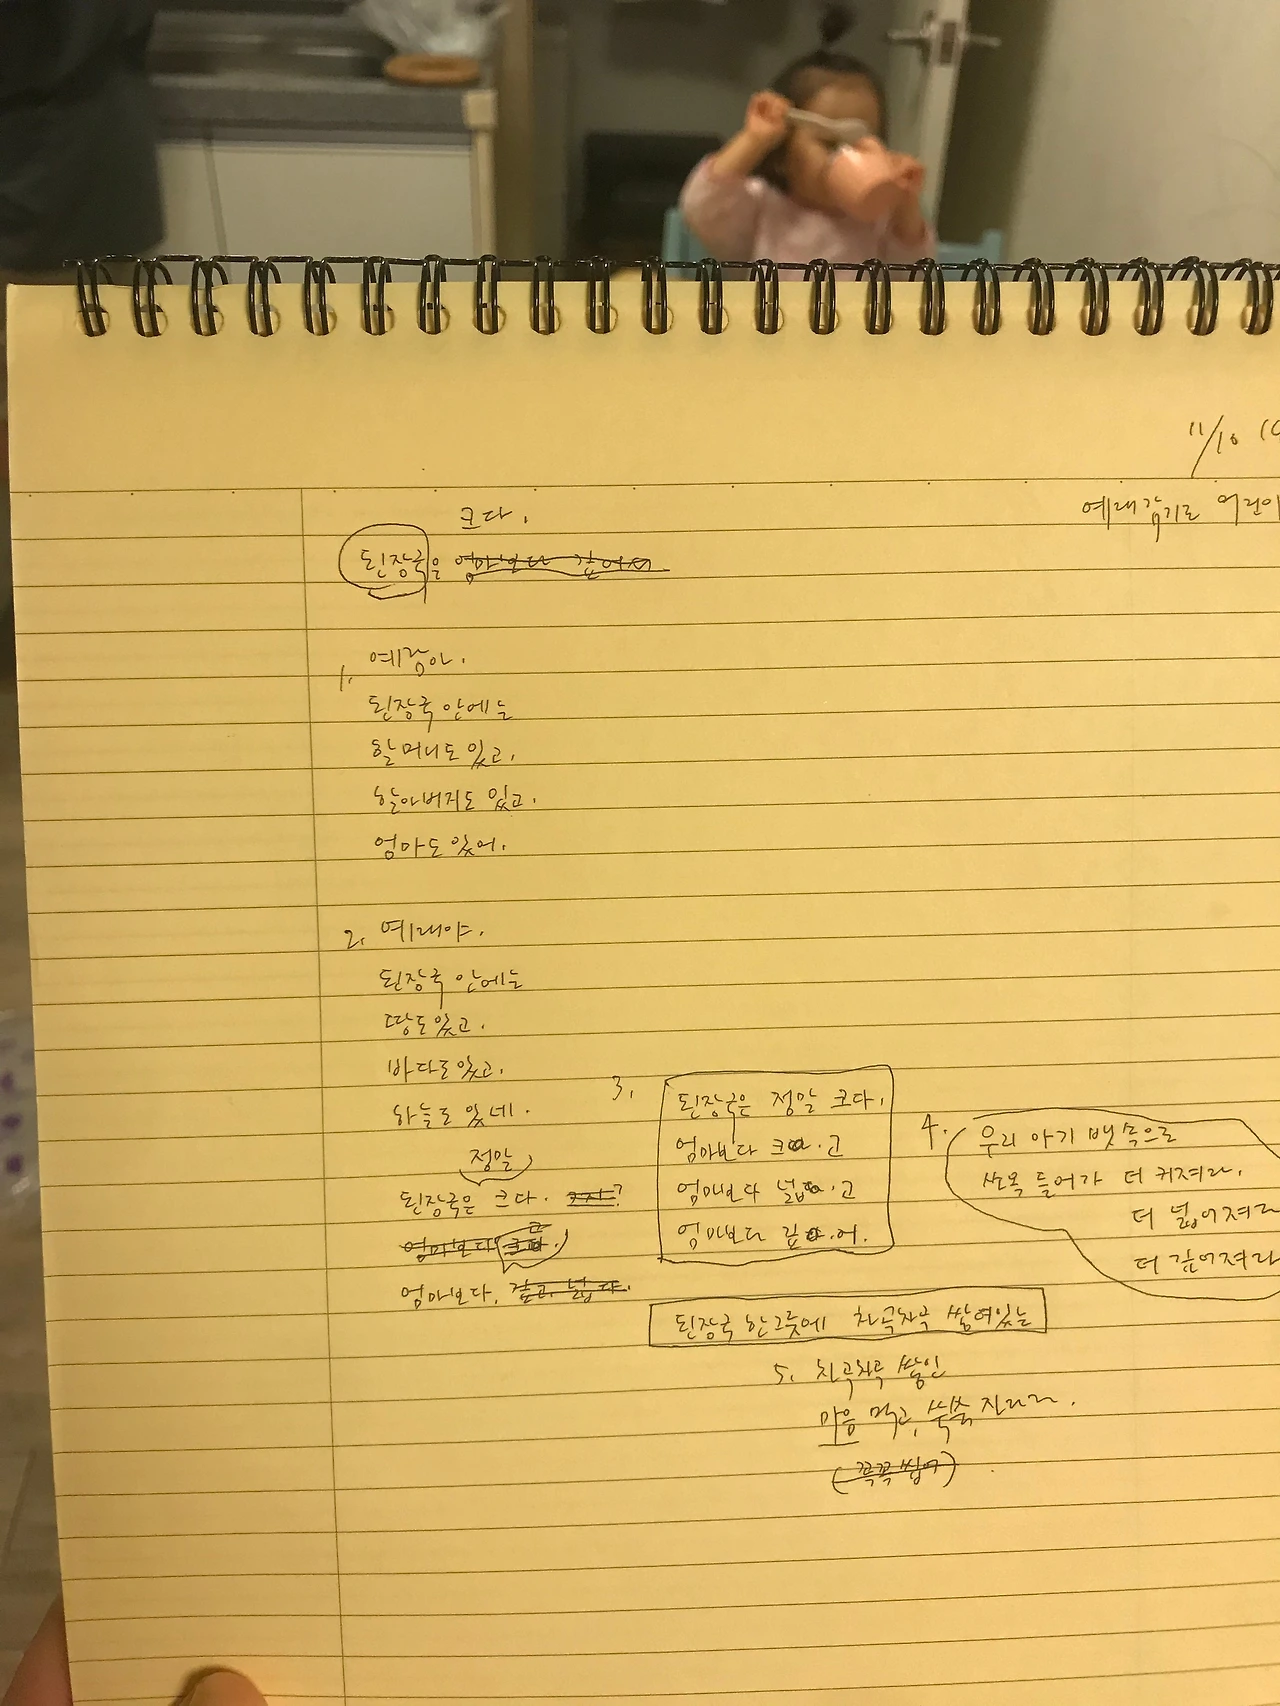 11/10
예래감기로 어린이
크다.
된장국은 엄마보다 깊어서
1. 예람아.
된장국 안에는
할머니도 있고,
할아버지도 있고,
엄마도 있어.
2. 예래야.
된장국 안에는
땅도 있고,
바다도 있고,
하늘도 있네.
정말
된장국은 크다.
엄마보다
엄마보다, 깊고, 넓다.
3. 된장국은 정말 크다.
엄마보다 크고
엄마보다 넓고
엄마보다 깊어.
4. 우리 아기 뱃속으로
쏘옥 들어가 더 커져라.
더 넓어져라
더 깊어져라
된장국 한그릇에 차곡차곡 쌓여있는
5. 차곡차곡 쌓인
마음 먹고, 쑥쑥 자라라.
(꼭꼭 씹어)